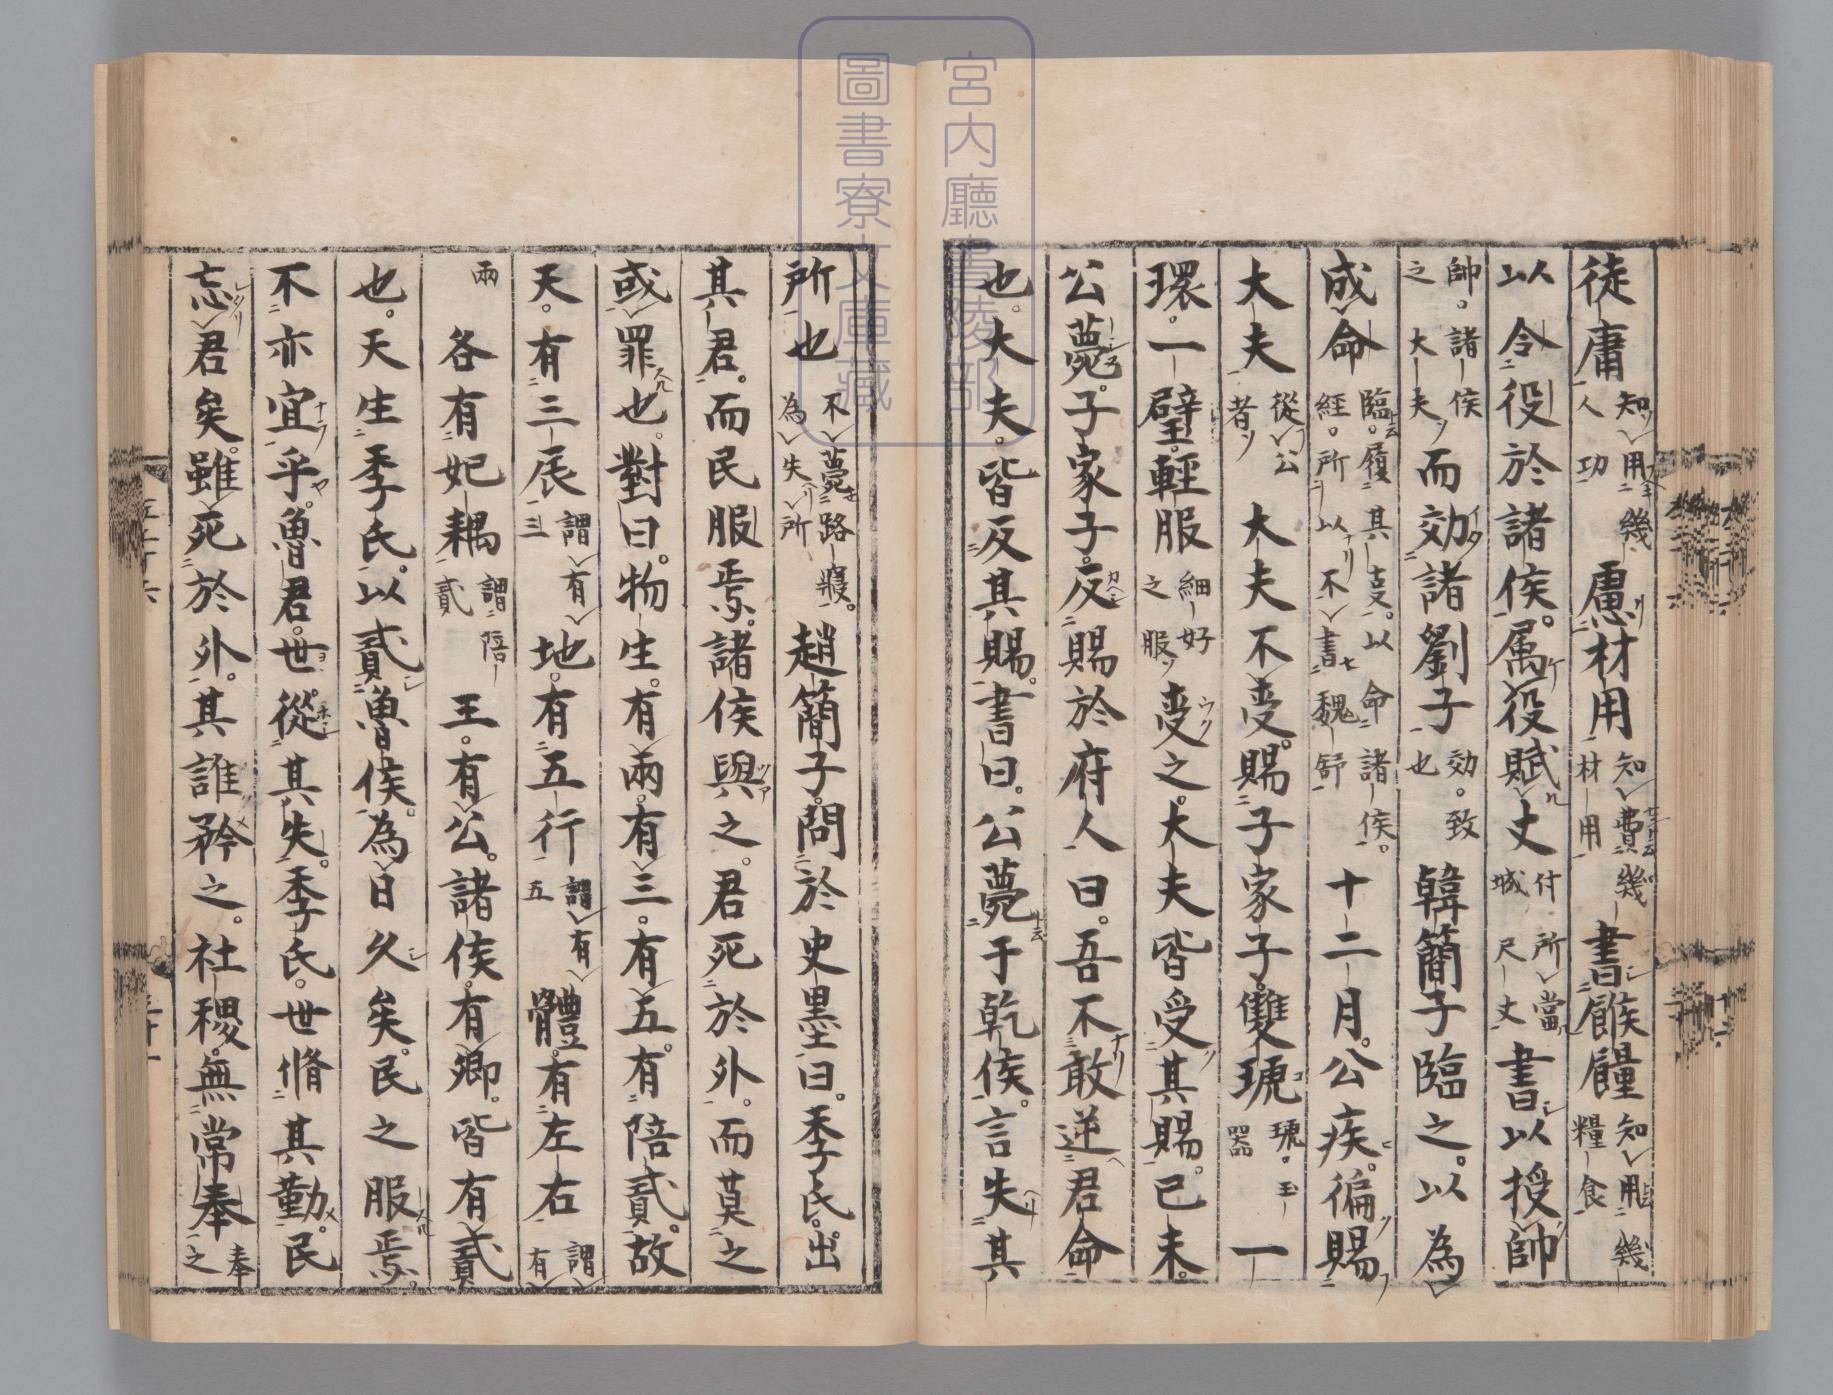 徒庸知用幾人功慮材用知費幾材用書餱糧知用幾糧食
以令役於諸侯属役賦丈付所當城尺丈書以授帥
帥諸侯之大夫而効諸劉子効致也韓簡子臨之以為
成命臨履其事以命諸侯經所以不書魏舒十二月公疾徧賜
大夫從公者大夫不受賜子家子雙琥琥玉器一
環一璧輕服細好之服受之大夫皆受其賜己未
公薨子家子反賜於府人曰吾不敢逆君命
也大夫皆反其賜書曰公薨于乾侯言失其
所也不薨路寢為失所趙簡子問於史墨曰季氏出
其君而民服焉諸侯與之君死於外而莫之
或罪也對曰物生有兩有三有五有陪貳故
天有三辰謂有三地有五行謂有五體有左右謂有
兩各有妃耦謂陪貳王有公諸侯有卿皆有貳
也天生季氏以貳魯侯為日久矣民之服焉
不亦宜乎魯君世從其失季氏世脩其勤民
忘君矣雖死於外其誰矜之社稷無常奉奉之
宮内廳書陵部
圖書寮文庫藏